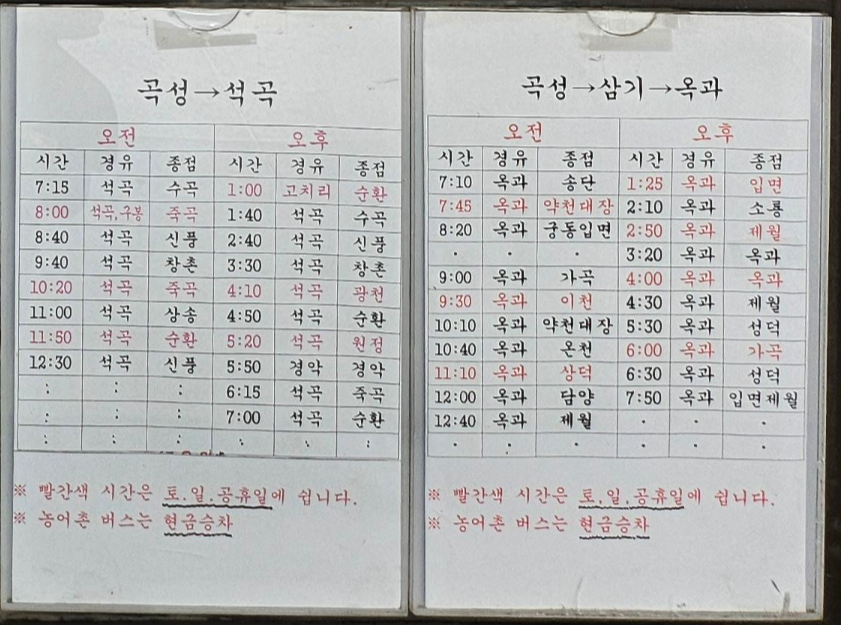 곡성→석곡
오전 오후
시간 경유 종점 시간 경유 종점
7:15 석곡 수곡 1:00 고치리 순환
8:00 석곡,구봉 죽곡 1:40 석곡 수곡
8:40 석곡 신풍 2:40 석곡 신풍
9:40 석곡 창촌 3:30 석곡 창촌
10:20 석곡 죽곡 4:10 석곡 광천
11:00 석곡 상송 4:50 석곡 순환
11:50 석곡 순환 5:20 석곡 원정
12:30 석곡 신풍 5:50 경악 경악
: : : 6:15 석곡 죽곡
: : : 7:00 석곡 순환
: : : : : :
※ 빨간색 시간은 토,일,공휴일에 쉽니다.
※ 농어촌 버스는 현금승차
곡성→삼기→옥과
오전 오후
시간 경유 종점 시간 경유 종점
7:10 옥과 송단 1:25 옥과 입면
7:45 옥과 약천대장 2:10 옥과 소룡
8:20 옥과 궁동입면 2:50 옥과 제월
. . . 3:20 옥과 옥과
9:00 옥과 가곡 4:00 옥과 옥과
9:30 옥과 이천 4:30 옥과 제월
10:10 옥과 약천대장 5:30 옥과 성덕
10:40 옥과 온천 6:00 옥과 가곡
11:10 옥과 상덕 6:30 옥과 성덕
12:00 옥과 담양 7:50 옥과 입면제월
12:40 옥과 제월 . . .
. . . . . .
※ 빨간색 시간은 토,일,공휴일에 쉽니다.
※ 농어촌 버스는 현금승차